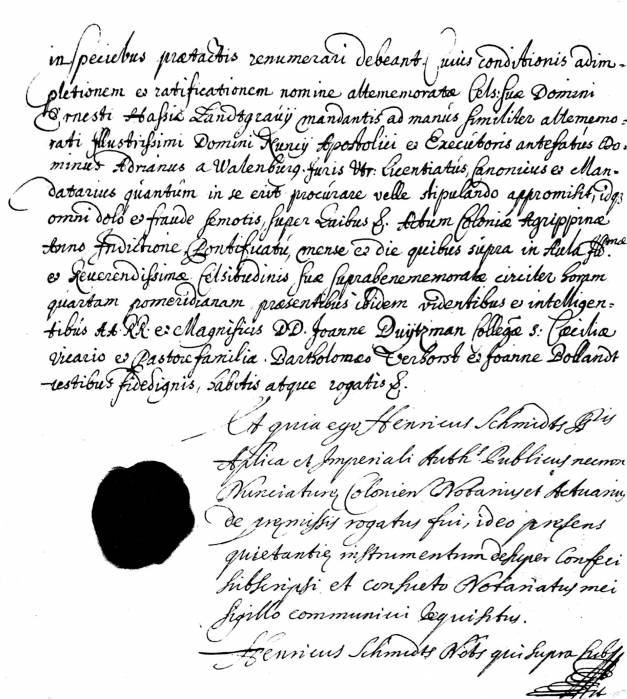 in speciebus praetactis renumerari debeant. Cuius conditionis adim-
pletionem et ratificationem nomine altememoratae Cels: suae Domini
Ernesti Hassiae Landtgravij mandantis ad manus similiter altememo-
rati Illustrissimi Domini Nuncij Apostolici et Executoris antefatus Do-
minus Adrianus a Walenburg Juris Vtr: licentiatus, Canonicus et Man-
datarius quantum in se erit procurare velle stipulando appromisit, idq
omni dolo et fraude semotis, super quibus &. Actum Coloniae Agrippinae
Anno Indictione Pontificatu, mense et die quibus supra in Aula
et Reverendissimae Celsitudinis suae suprabenememoratae circiter horam
quartam pomeridianam, praesentibus ibidem videntibus et intelligen-
tibus AA. RR. et Magnificis DD. Joanne Duijtzman Collegae s: Caeciliae
Vicario et Pastore familia. Bartholomeo Verhorst et Joanne Bollandt
testibus fidedignis, habitis atque rogatis &.
Et quia ego Henricus Schmidts
Aplica et Imperiali Auth: Publicus necnon
Nunciaturę Colonien Notarius et Actuarius
de pręmissis rogatus fui, ideo pręsens
quietantię instrumentum desuper confeci
subscripsi et consueto Notariatus mei
sigillo communivi requisitus.
Henricus Schmidts Notus qui supra subss